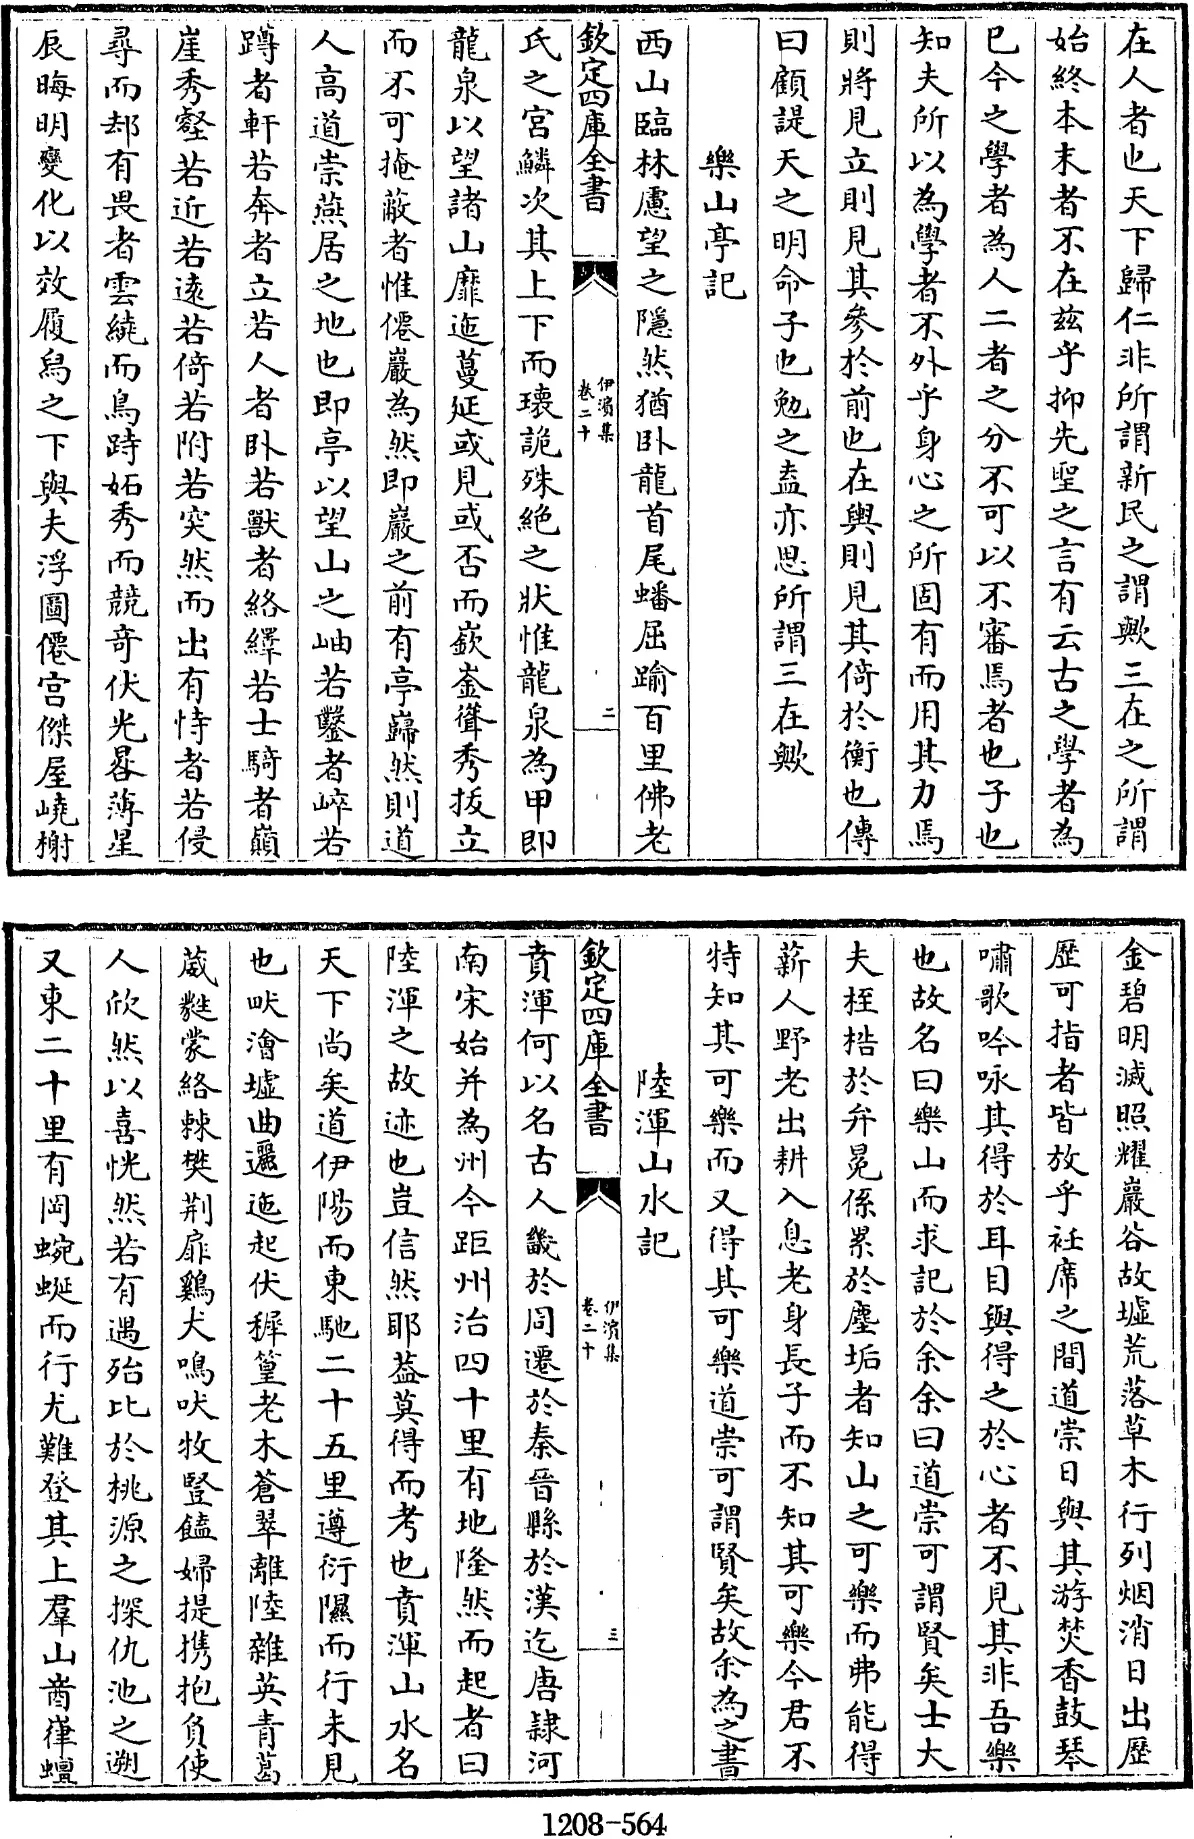 在人者也天下歸仁非所謂新民之謂歟三在之所謂
始終本末者不在兹乎抑先聖之言有云古之學者為
已今之學者為人二者之分不可以不審焉者也子也
知夫所以為學者不外乎身心之所固有而用其力焉
則將見立則見其參於前也在輿則見其倚於衡也傳
曰顧諟天之明命子也勉之盍亦思所謂三在歟
樂山亭記
西山臨林慮望之隱然猶卧龍首尾蟠屈踰百里佛老
欽定四庫全書
伊濱集
卷二十
二
氏之宮鱗次其上下而瓌詭殊絶之狀惟龍泉為甲即
龍泉以望諸山靡迤蔓延或見或否而嶔崟聳秀拔立
而不可掩蔽者惟僊巖為然即巖之前有亭巋然則道
人高道崇燕居之地也即亭以望山之岫若鑿者崒若
蹲者軒若奔者立若人者卧若獸者絡繹若士騎者巔
崖秀壑若近若遠若倚若附若突然而出有恃者若侵
尋而却有畏者雲繞而鳥跱妬秀而競奇伏光晷薄星
辰晦明變化以效履舄之下與夫浮圖僊宫傑屋嶢榭
金碧明滅照耀巖谷故墟荒落草木行列烟消日出歷
歷可指者皆故乎衽席之間道崇日與其游焚香鼓琴
嘯歌吟咏其得於耳目與得之於心者不見其非吾樂
也故名曰樂山而求記於余余曰道崇可謂賢矣士大
夫桎梏於弁冕係累於塵垢者知山之可樂而弗能得
薪人野老出耕入息老身長子而不知其可樂今君不
特知其可樂而又得其可樂道崇可謂賢矣故余為之書
陸渾山水記
欽定四庫全書
伊濱集
卷二十
三
賁渾何以名古人畿於周遷於秦晉縣於漢迄唐隸河
南宋始并為州今距州治四十里有地隆然而起者曰
陸渾之故迹也豈信然耶葢莫得而考也賁渾山水名
天下尚矣道伊陽而東馳二十五里遵衍隰而行未見
也畎澮墟曲邐迤起伏穉篁老木蒼翠離陸雜英青葛
葳蕤蒙絡棘樊荆扉鷄犬鳴吠牧豎饁婦提携抱負使
人欣然以喜恍然若有遇殆比於桃源之探仇池之遡
又東二十里有岡蜿蜒而行尤難登其上羣山崷崒蟺